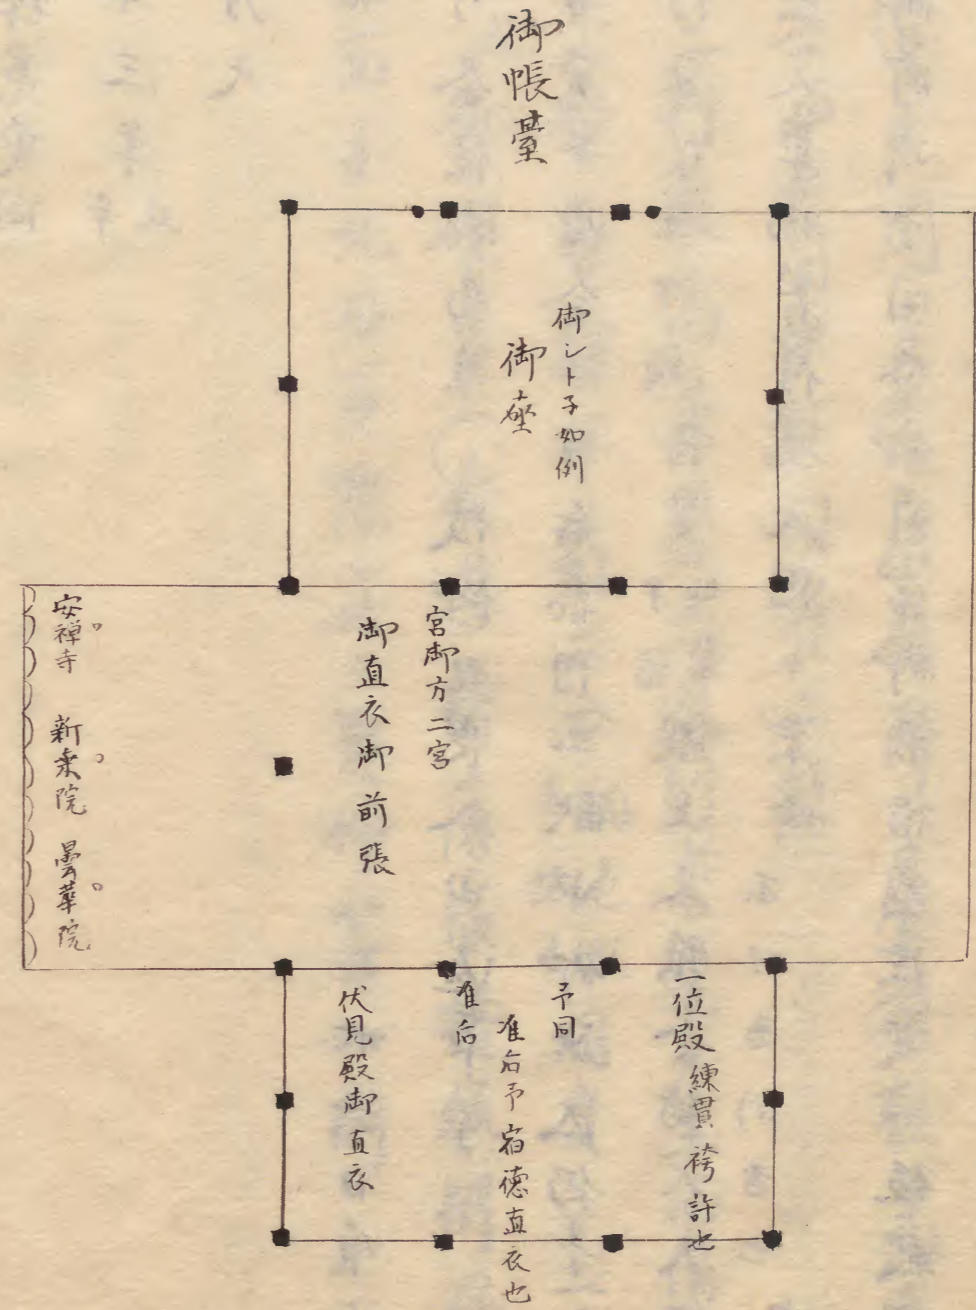 御帳臺
御シト子如例
御座
宮御方二宮
御直衣御前張
安禅寺 新来院 曇華院
一位殿 練貫袴許也
予同
准后予宿徳直衣也
准后
伏見殿御直衣